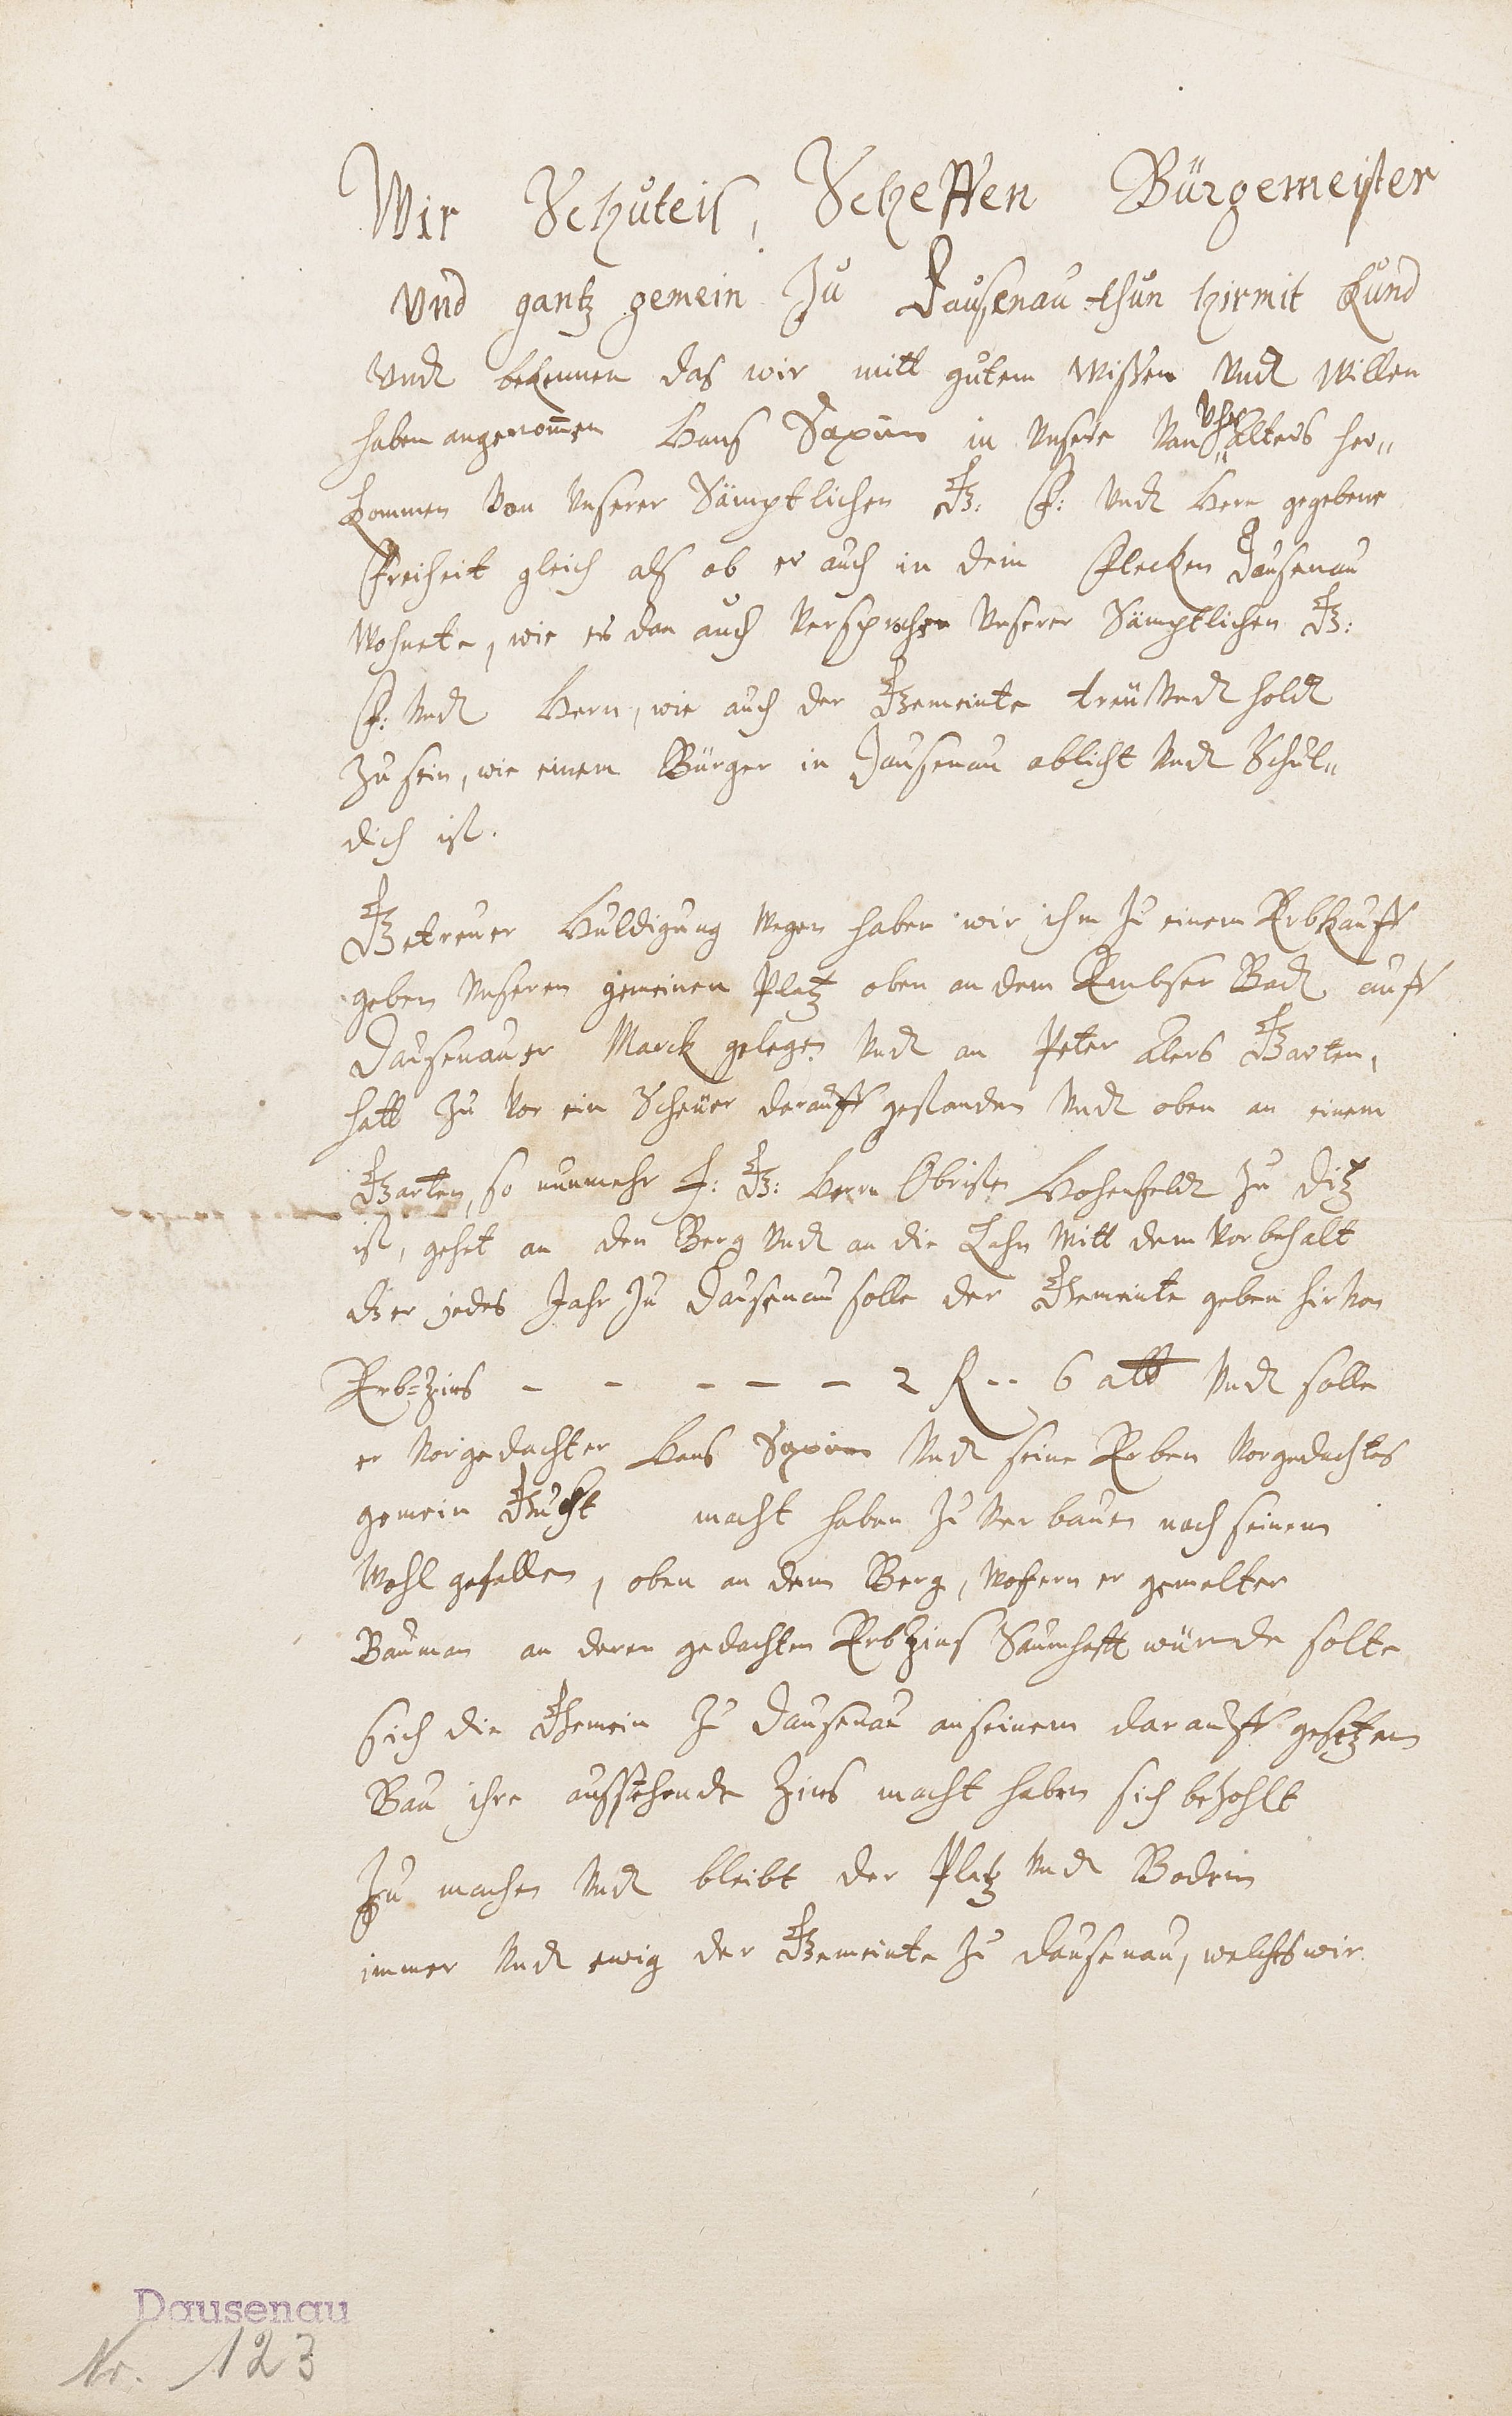 Wir Schuteis, Scheffen Bürgemeister
Vnd gantz gemein Zu Dausenau thun hirmit kund
Vndt bekennen das wir mitt gutem Wissen Vndt Willen
haben angenommen Hans in Vnsere Von Vhr Alters her„
kommen Von Vnserer Sämptlichen G: F: Vndt Hern gegebene
Freiheit gleich als ob er auch in dem Flecken Dausenau
Wohnete, wie er dan auch Versprochen Vnserer Sämptlichen G:
F: Vndt Hern, wie auch der Gemeinte treü Vndt holdt
Zu sein, wie einem Bürger in Dausenau oblicht Vndt Schul„
dich ist.
Getreuer Huldigung Wegen haben wir ihm Zu einem Erbkauff
geben Vnseren gemeinen Platz oben an dem Embser Badt auff
Dausenauer Marck gelegen Vndt an Peter Garten,
hatt Zu Vor ein Scheüer darauff gestanden Vndt oben an einem
Garten, so nunmehr F: G: Herrn Obristen Hohenfeldt Zu Ditz
ist, gehet an den Berg Vndt an die Lahn Mitt dem Vorbehalt
dz er jedes Jahr Zu Dausenau solle der Gemeinte geben hir Von
Erb=Zins - - - - - 2 R -- 6 alb Vndt solle
er Vorgedachter Hans Vndt seine Erben Vorgedachtes
gemein macht haben Zu Verbauen nach seinem
Wohl gefallen, oben an dem Berg, Wofern er gemelter
Bauman an deren gedachten Erb Zins Saumhafft würde solte
sich die Gemein Zu Dausenau an seinem darauff gesetzem
Bau ihre ausstehende Zins macht haben sich bezahlt
Zu machen Vndt bleibt der Platz Vndt Bodem
immer Vndt ewig der Gemeinte Zu Dausenau, welches wir
Dausenau
Nr. 123